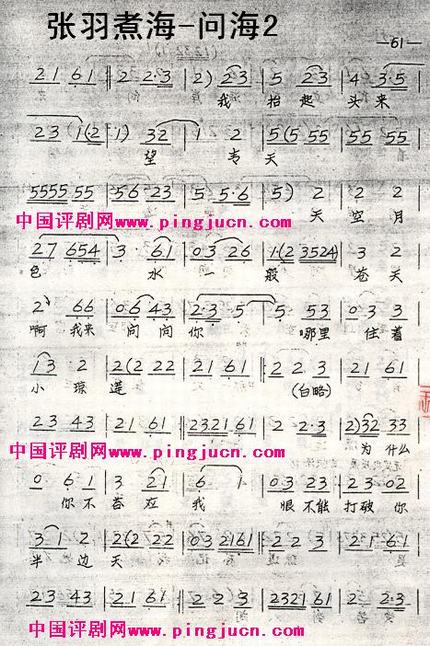 张羽煮海-问海2
—61—
2 1 6 1 | 2 2·3 | 2) 2 3 | 5 2 3 | 4 3·5
我 抬 起 头 来
2 3 (1 (2 | 1) 3 2 | 1 2 | 5 (5 55 | 55 55
望 天
5555 55 | 56·23 | 5 5·6 | 5) 2 | 2 2
中国评剧网www.pingjucn.com 天 空 月
2 7 6 5 4 | 3·6 1 | 0 3 2 6 | 1·(2 3524) | 3 2
色 水 一 般 苍 天
2 6 6 | 0·6 4 3 | 2·3·5 | 5·5 3 | 0 3 3
啊 我来 问问 你 哪里 住着
1 3·2 | 2 (2 2 2 | 2 1 6 1 | 2 2 3 | 2 1 6 1
小 琼 莲 (白略)
2 3 4 3 | 2 1 6 1 | 2321 61 | 2 2·3 | 2) 3 2 3 3
中国评剧网www.pingjucn.com 为 什么
0 6 1 | 3 2 1 | 6 1 | 0 3 2 3 | 2 3·0
你 不 答 应 我 恨不能 打破你
3 1 2 | 2 (2 2 2 | 0 3 2161 | 2 2 3 | 2·1·6 1
半 边 天
2·3 4 3 | 2 1 6 1 | 2 2 3 | 2321 61 | 2 2·3
中国评剧网www.pingjucn.com